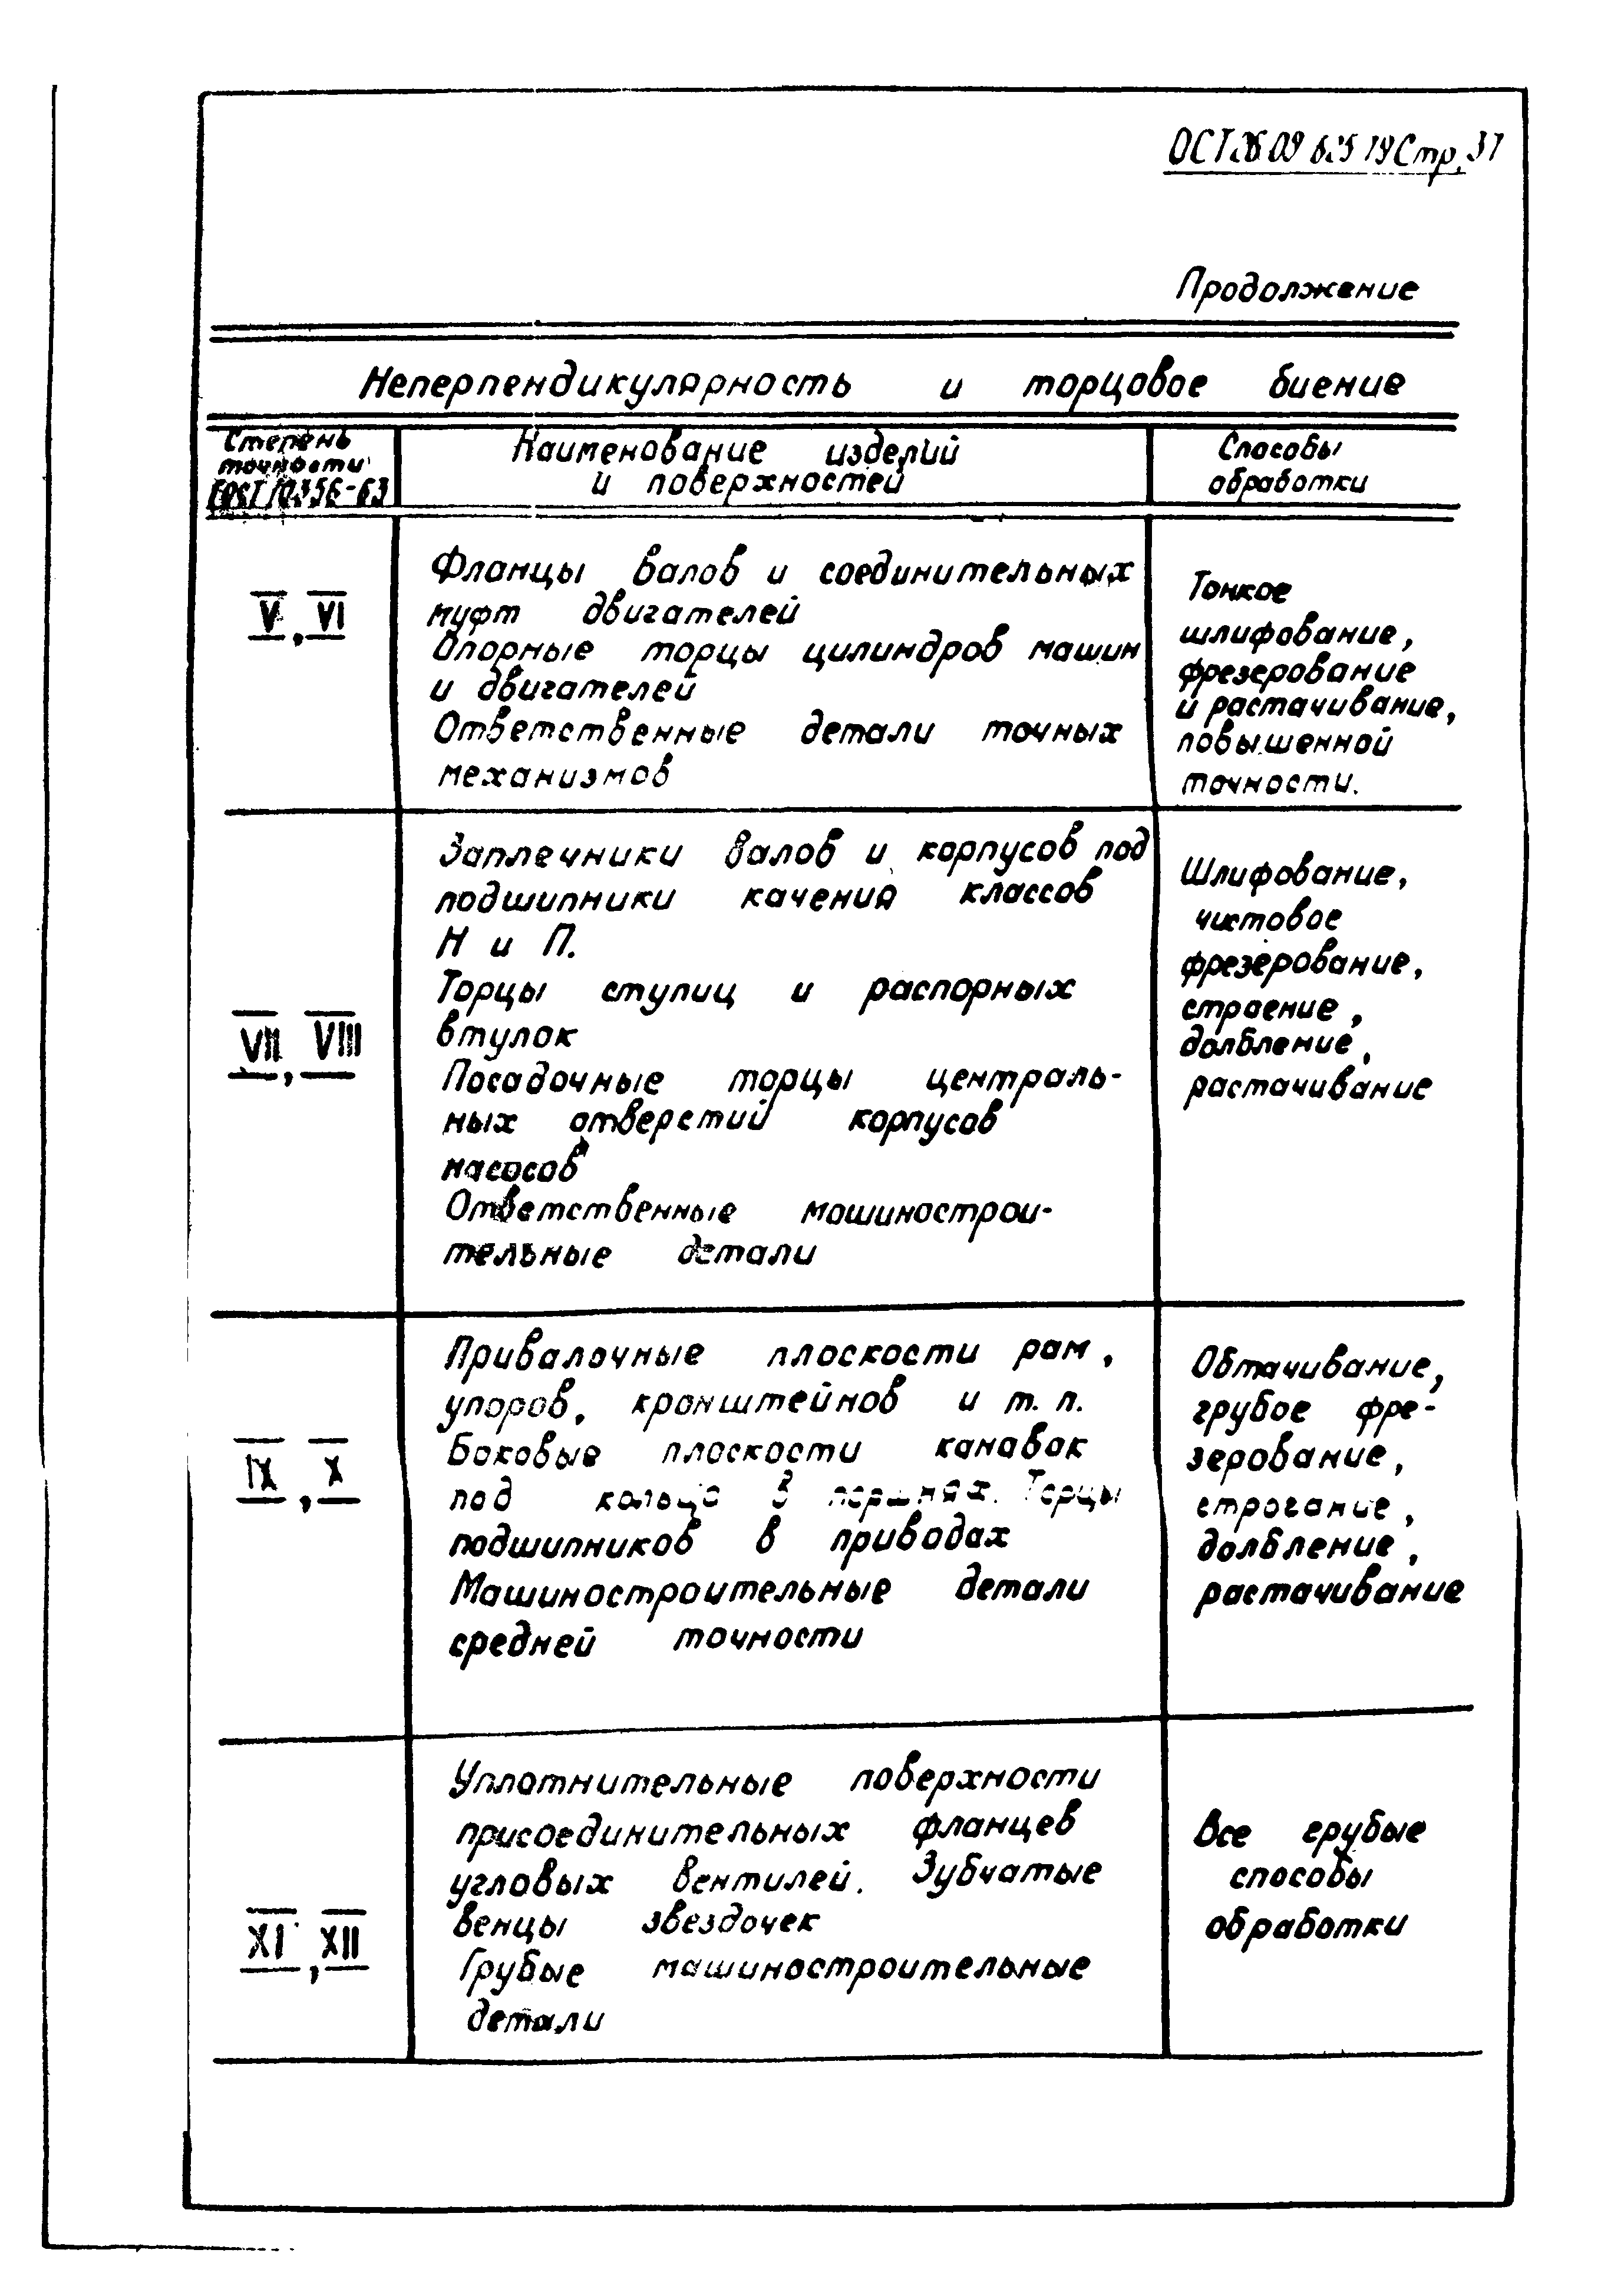 Стр. 37
Продолжение
Неперпендикулярность и торцовое биение
Степень
точности
ГОСТ 10356-63
Наименование изделий
и поверхностей
Способы
обработки
V, VI
Фланцы валов и соединительных
муфт двигателей
Опорные торцы цилиндров машин
и двигателей
Ответственные детали точных
механизмов
Тонкое
шлифование,
фрезерование
и растачивание,
повышенной
точности.
VII, VIII
Заплечники валов и корпусов под
подшипники качения классов
Н и П.
Торцы ступиц и распорных
втулок
Посадочные торцы централь-
ных отверстий корпусов
насосов
Ответственные машинострои-
тельные детали
Шлифование,
чистовое
фрезерование,
страение,
долбление,
растачивание
IX, X
Привалочные плоскости рам,
упоров, кронштейнов и т. п.
Боковые плоскости канавок
под кольца в поршнях. Торцы
подшипников в приводах
Машиностроительные детали
средней точности
Обтачивание,
грубое фре-
зерование,
строгание,
долбление,
растачивание
XI, XII
Уплотнительные поверхности
присоединительных фланцев
угловых вентилей. Зубчатые
венцы звездочек
Грубые машиностроительные
детали
Все грубые
способы
обработки